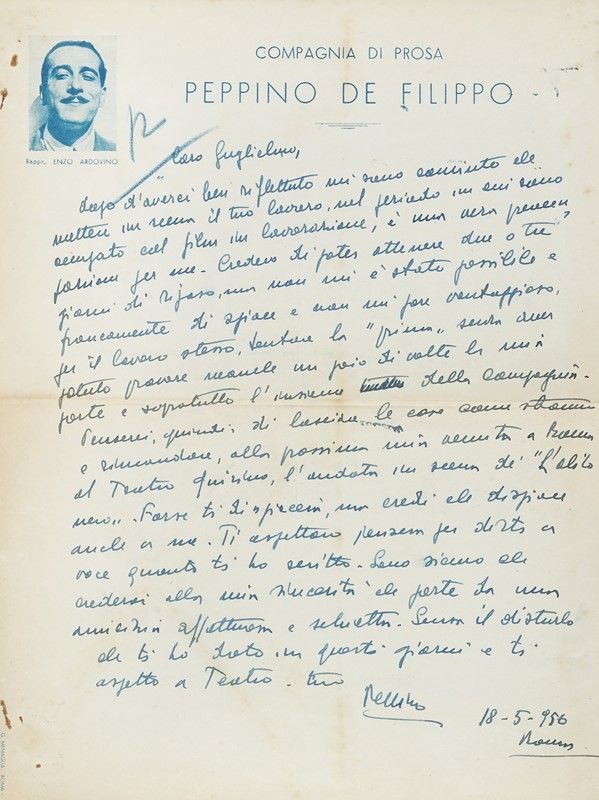 COMPAGNIA DI PROSA
PEPPINO DE FILIPPO
Rappr. ENZO ARDOVINO
Caro Guglielmo,
dopo d'averci ben riflettuto mi sono convinto che
mettere in scena il tuo lavoro, nel periodo in cui sono
occupato col film in lavorazione, è una vera
per me. Credevo di poter ottenere due o tre
giorni di riposo, ma non mi è stato possibile e
francamente di spiace e non mi pare vantaggioso,
per il lavoro stesso, tentare la "prima" senza aver
potuto provare neanche un paio di volte la mia
parte e sopratutto l'insieme della Compagnia.
Penserei, quindi, di lasciare le cose come stanno
e rimandare, alla prossima mia venuta a Roma
al Teatro Quirino, l'andata in scena de "L'abito
nero". Forse ti dispiacerà, ma credi che dispiace
anche a me. Ti aspettavo per dirti a
voce quanto ti ho scritto. Sono sicuro che
crederai alla mia sincerità che parte da una
amicizia affettuosa e schietta. Scusa il disturbo
che ti ho dato in questi giorni e ti
aspetto a Teatro. tuo
Peppino
18-5-956
Roma